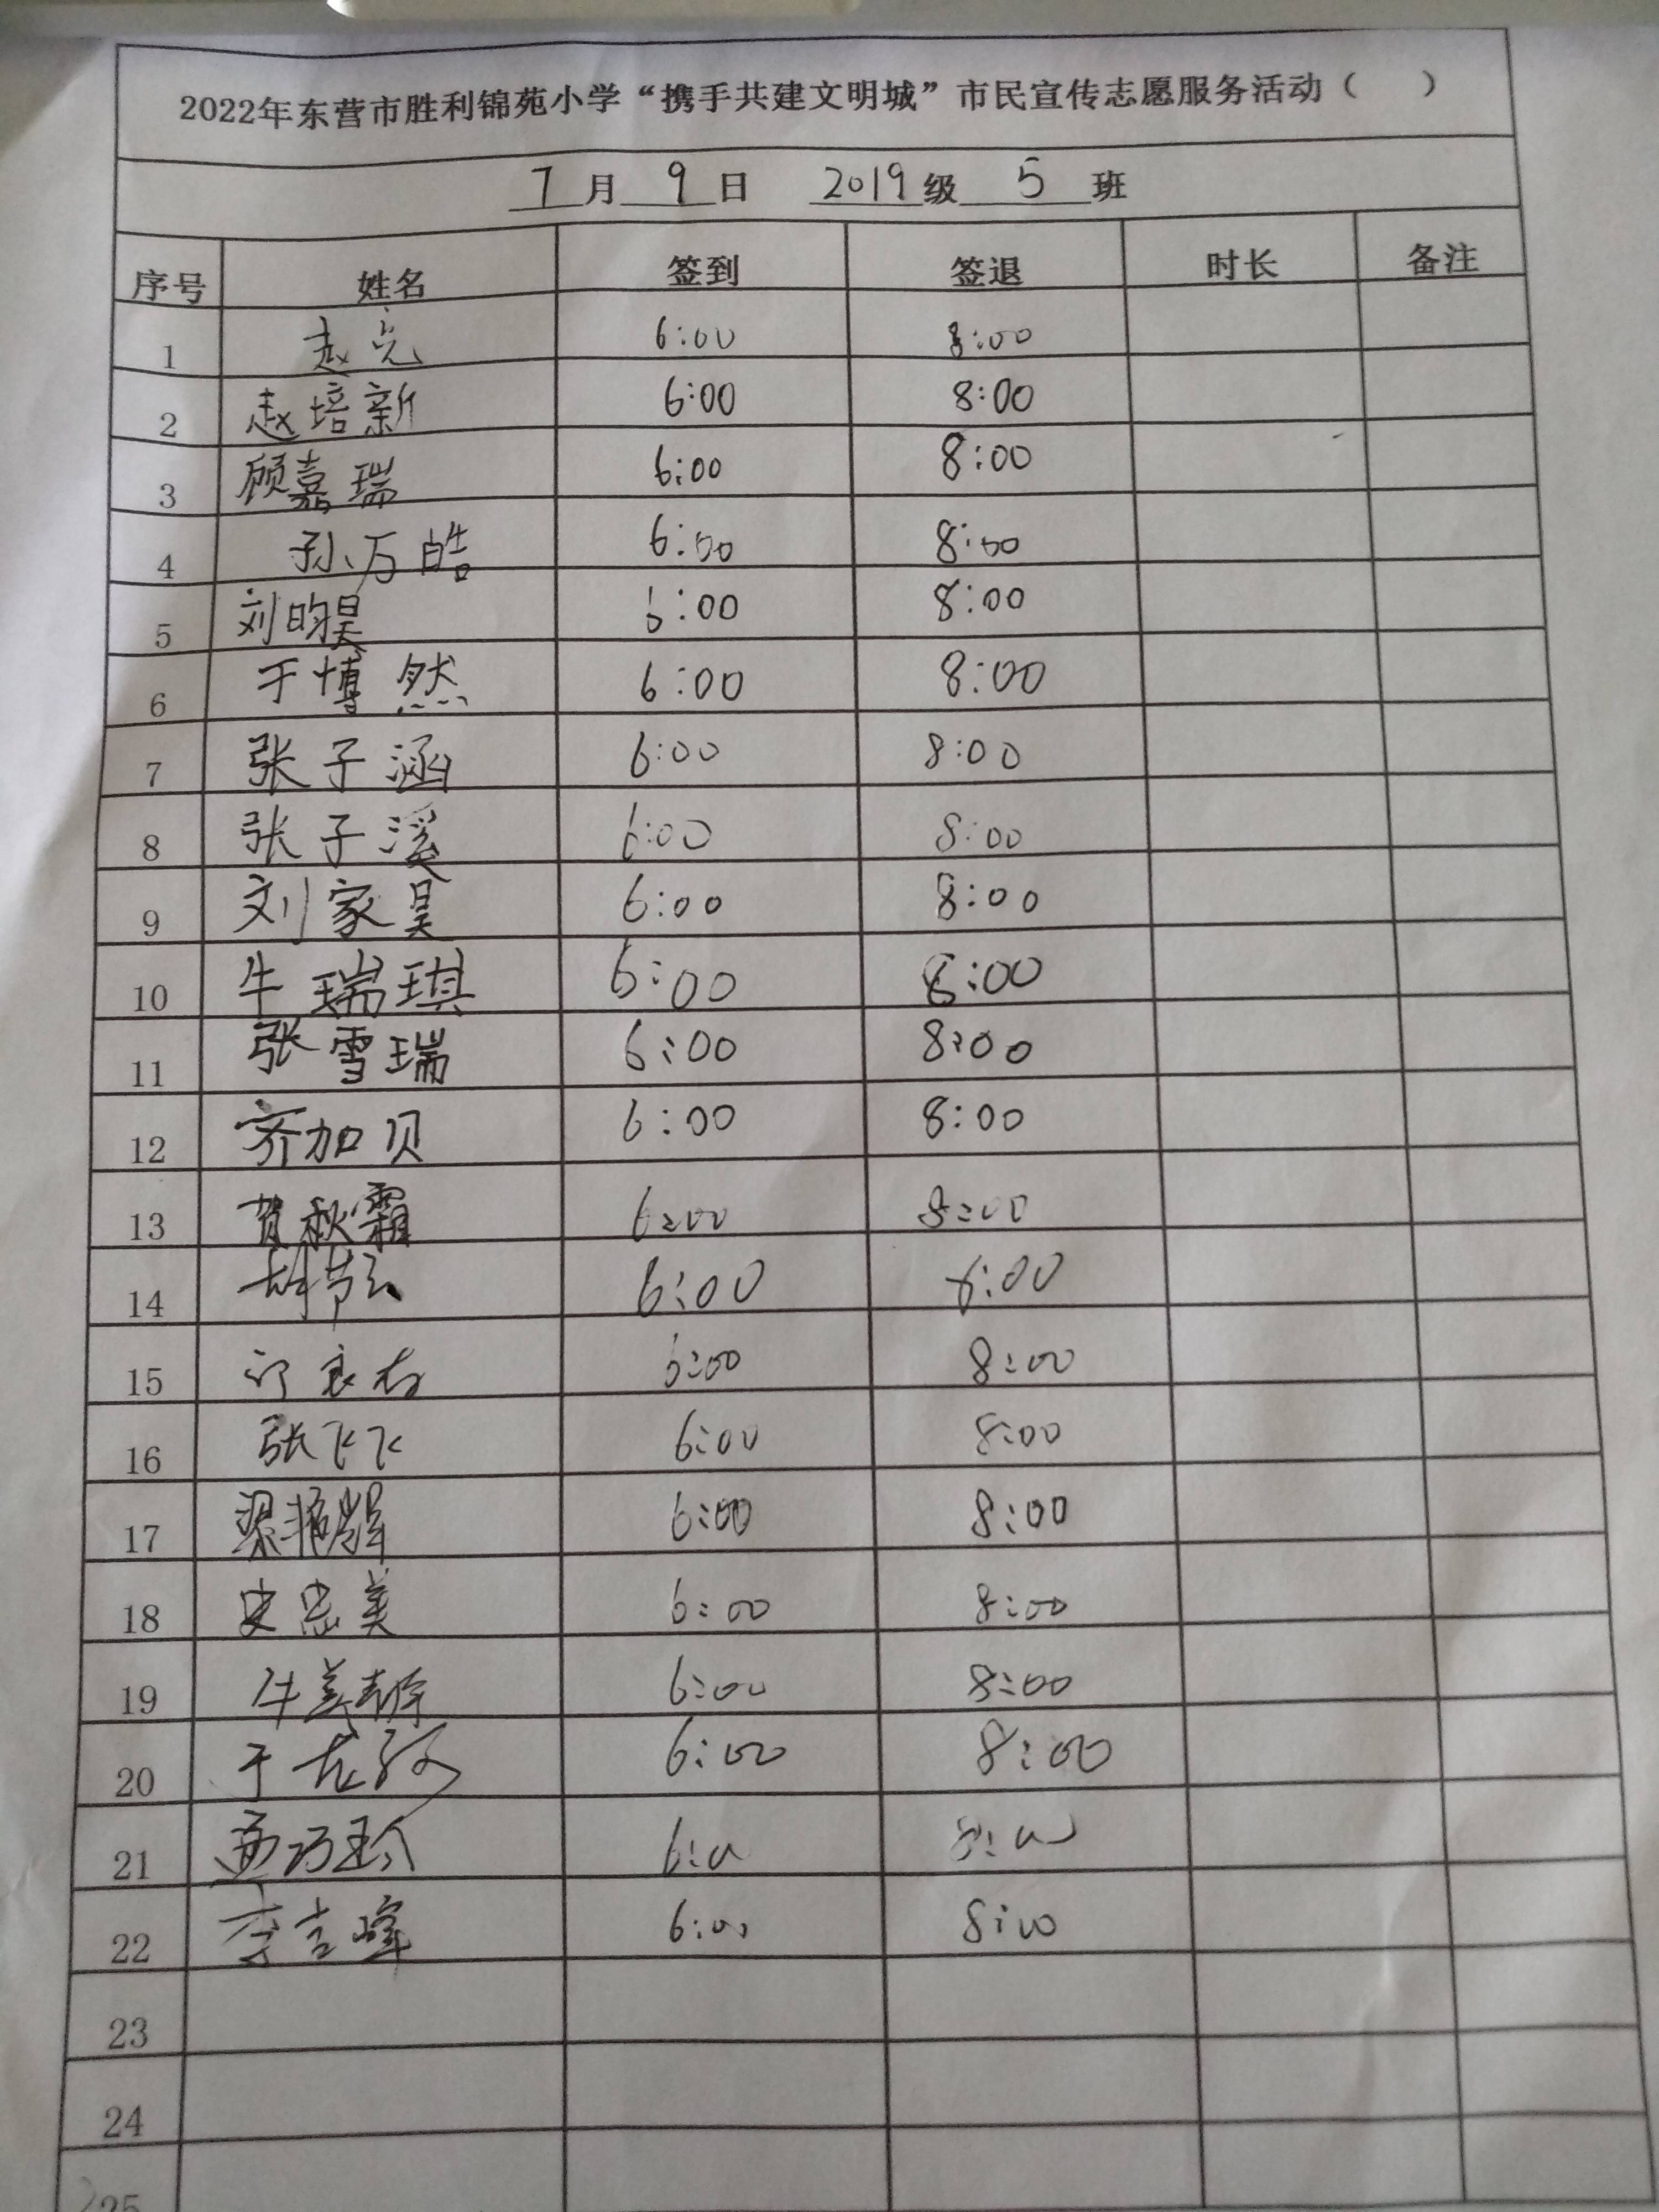 2022年东营市胜利锦苑小学“携手共建文明城”市民宣传志愿服务活动（ ）
7月9日 2019级5班
序号 姓名 签到 签退 时长 备注
1 赵亮 6:00 8:00
2 赵培新 6:00 8:00
3 顾嘉瑞 6:00 8:00
4 孙万皓 6:00 8:00
5 刘昀昊 6:00 8:00
6 于博然 6:00 8:00
7 张子涵 6:00 8:00
8 张子溪 6:00 8:00
9 刘家昊 6:00 8:00
10 牛瑞琪 6:00 8:00
11 张雪瑞 6:00 8:00
12 齐加贝 6:00 8:00
13 贺秋霜 6:00 8:00
14 6:00 8:00
15 6:00 8:00
16 张飞飞 6:00 8:00
17 梁艳辉 6:00 8:00
18 史忠美 6:00 8:00
19 牛 6:00 8:00
20 于龙 6:00 8:00
21 6:00 8:00
22 李吉峰 6:00 8:00
23
24
25